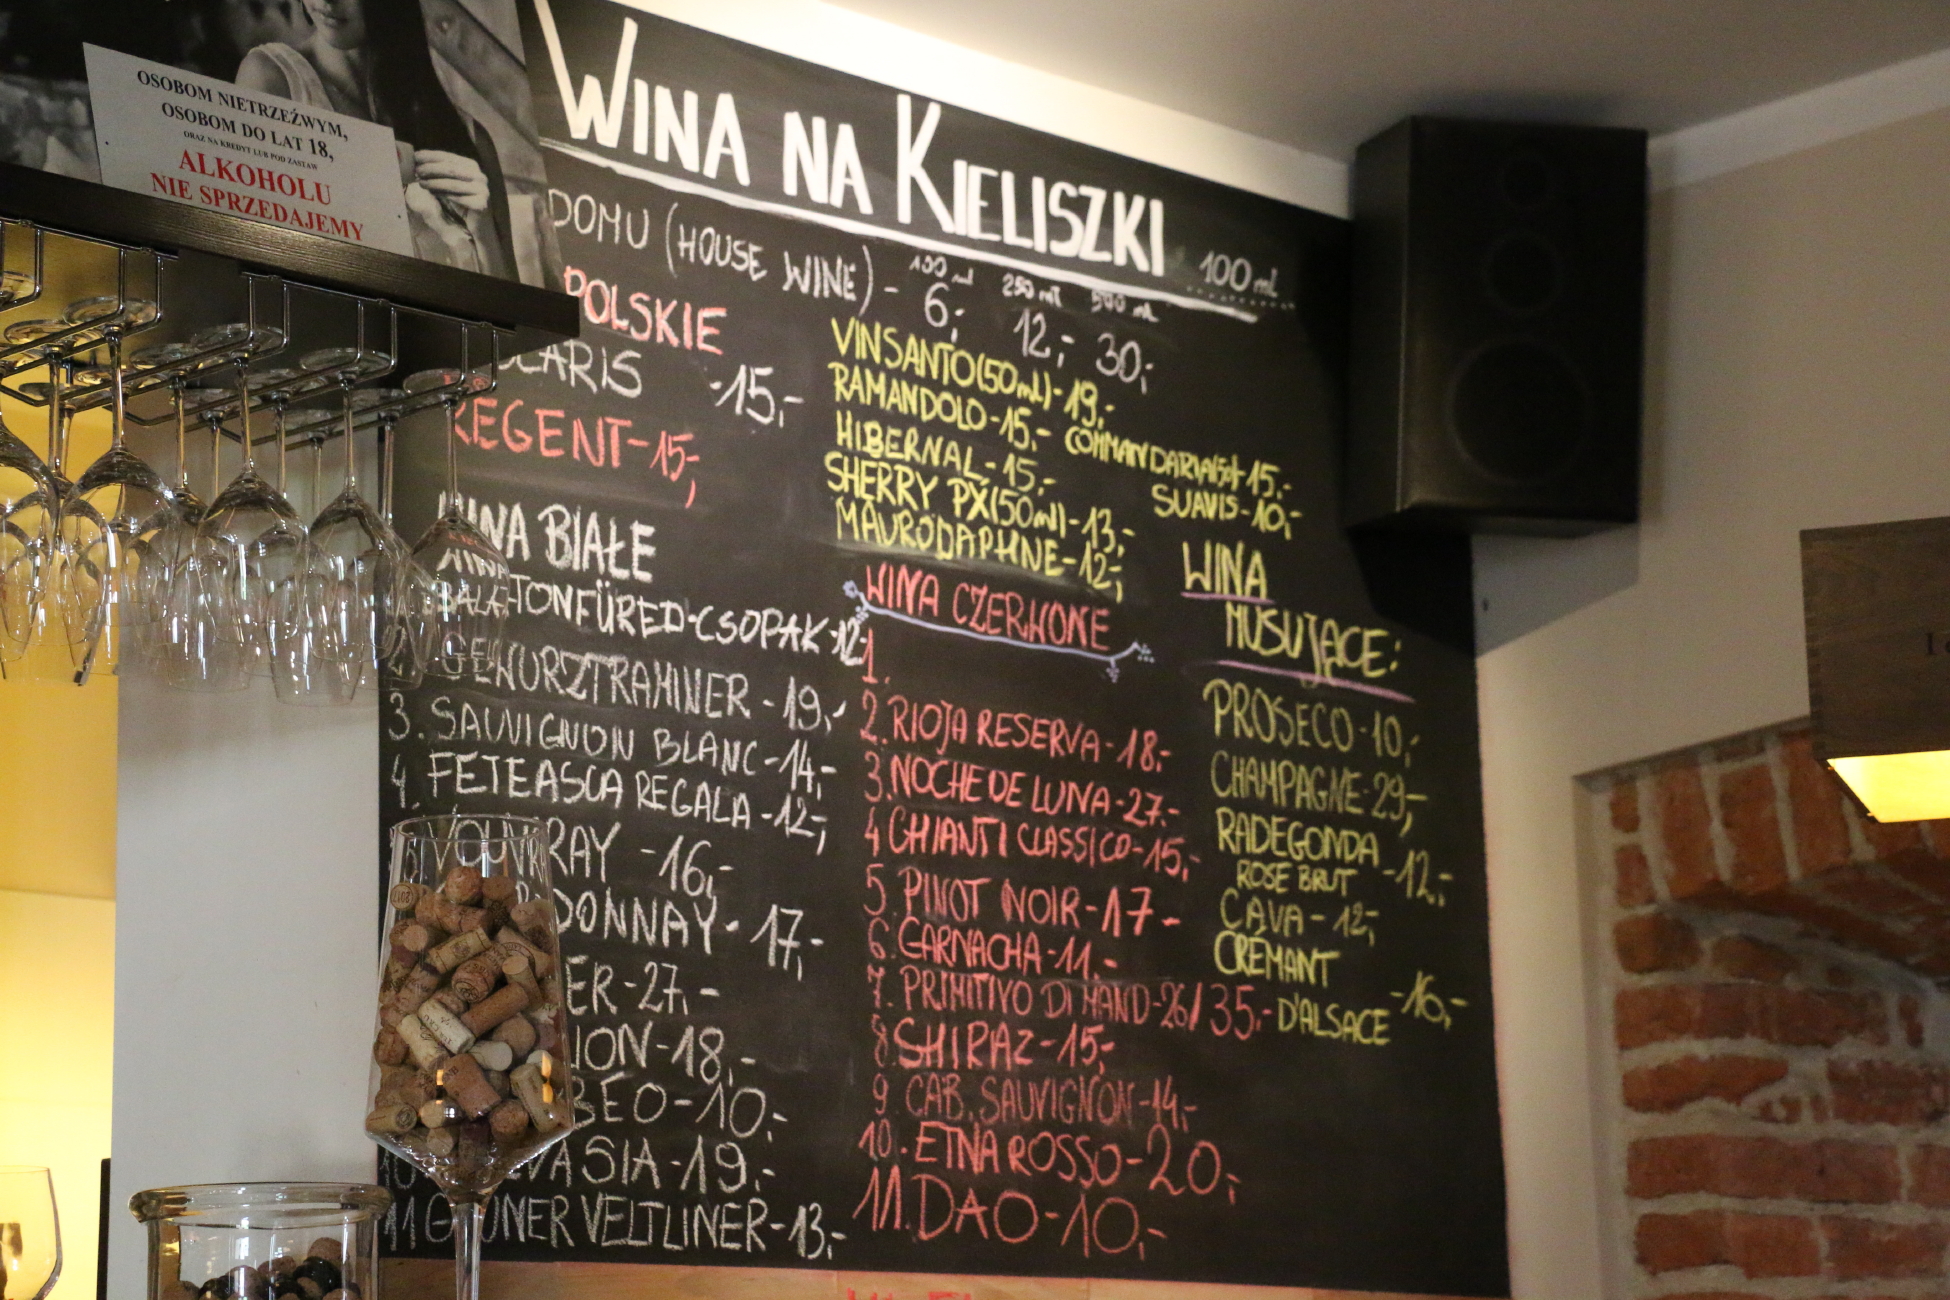 OSOBOM NIETRZEŹWYM,
OSOBOM DO LAT 18,
ORAZ NA KREDYT LUB POD ZASTAW
ALKOHOLU
NIE SPRZEDAJEMY
WINA NA KIELISZKI 100 ml
DOMU (HOUSE WINE) -
100 ml 250 ml 500 ml
6,- 12,- 30,-
POLSKIE
-15,-
REGENT-15,-
VINSANTO(50ml)-19,-
RAMANDOLO-15,-
COMMANDARIA 15,-
HIBERNAL-15,-
SUAVIS-10,-
SHERRY PX(50ml)-13,-
MAVRODAPHNE-12,-
WINA BIAŁE
BALATONFÜRED-CSOPAK-12,-
2. GEWURZTRAMINER-19,-
3. SAUVIGNON BLANC-14,-
4. FETEASCA REGALA-12,-
VOUVRAY -16,-
-17,-
-27,-
-18,-
-10,-
-19,-
11 GRUNER VELTLINER-13,-
WINA CZERWONE
1.
2. RIOJA RESERVA-18,-
3. NOCHE DE LUNA-27,-
4 CHIANTI CLASSICO-15,-
5 PINOT NOIR-17-
6. GARNACHA-11,-
7. PRIMITIVO DI MAND-26/35,-
8. SHIRAZ-15,-
9. CAB. SAUVIGNON-14,-
10. ETNA ROSSO-20,-
11. DAO-10,-
WINA
MUSUJĄCE:
PROSECO-10,-
CHAMPAGNE-29,-
RADEGONDA
ROSE BRUT -12,-
CAVA-12,-
CRÉMANT
D'ALSACE -16,-